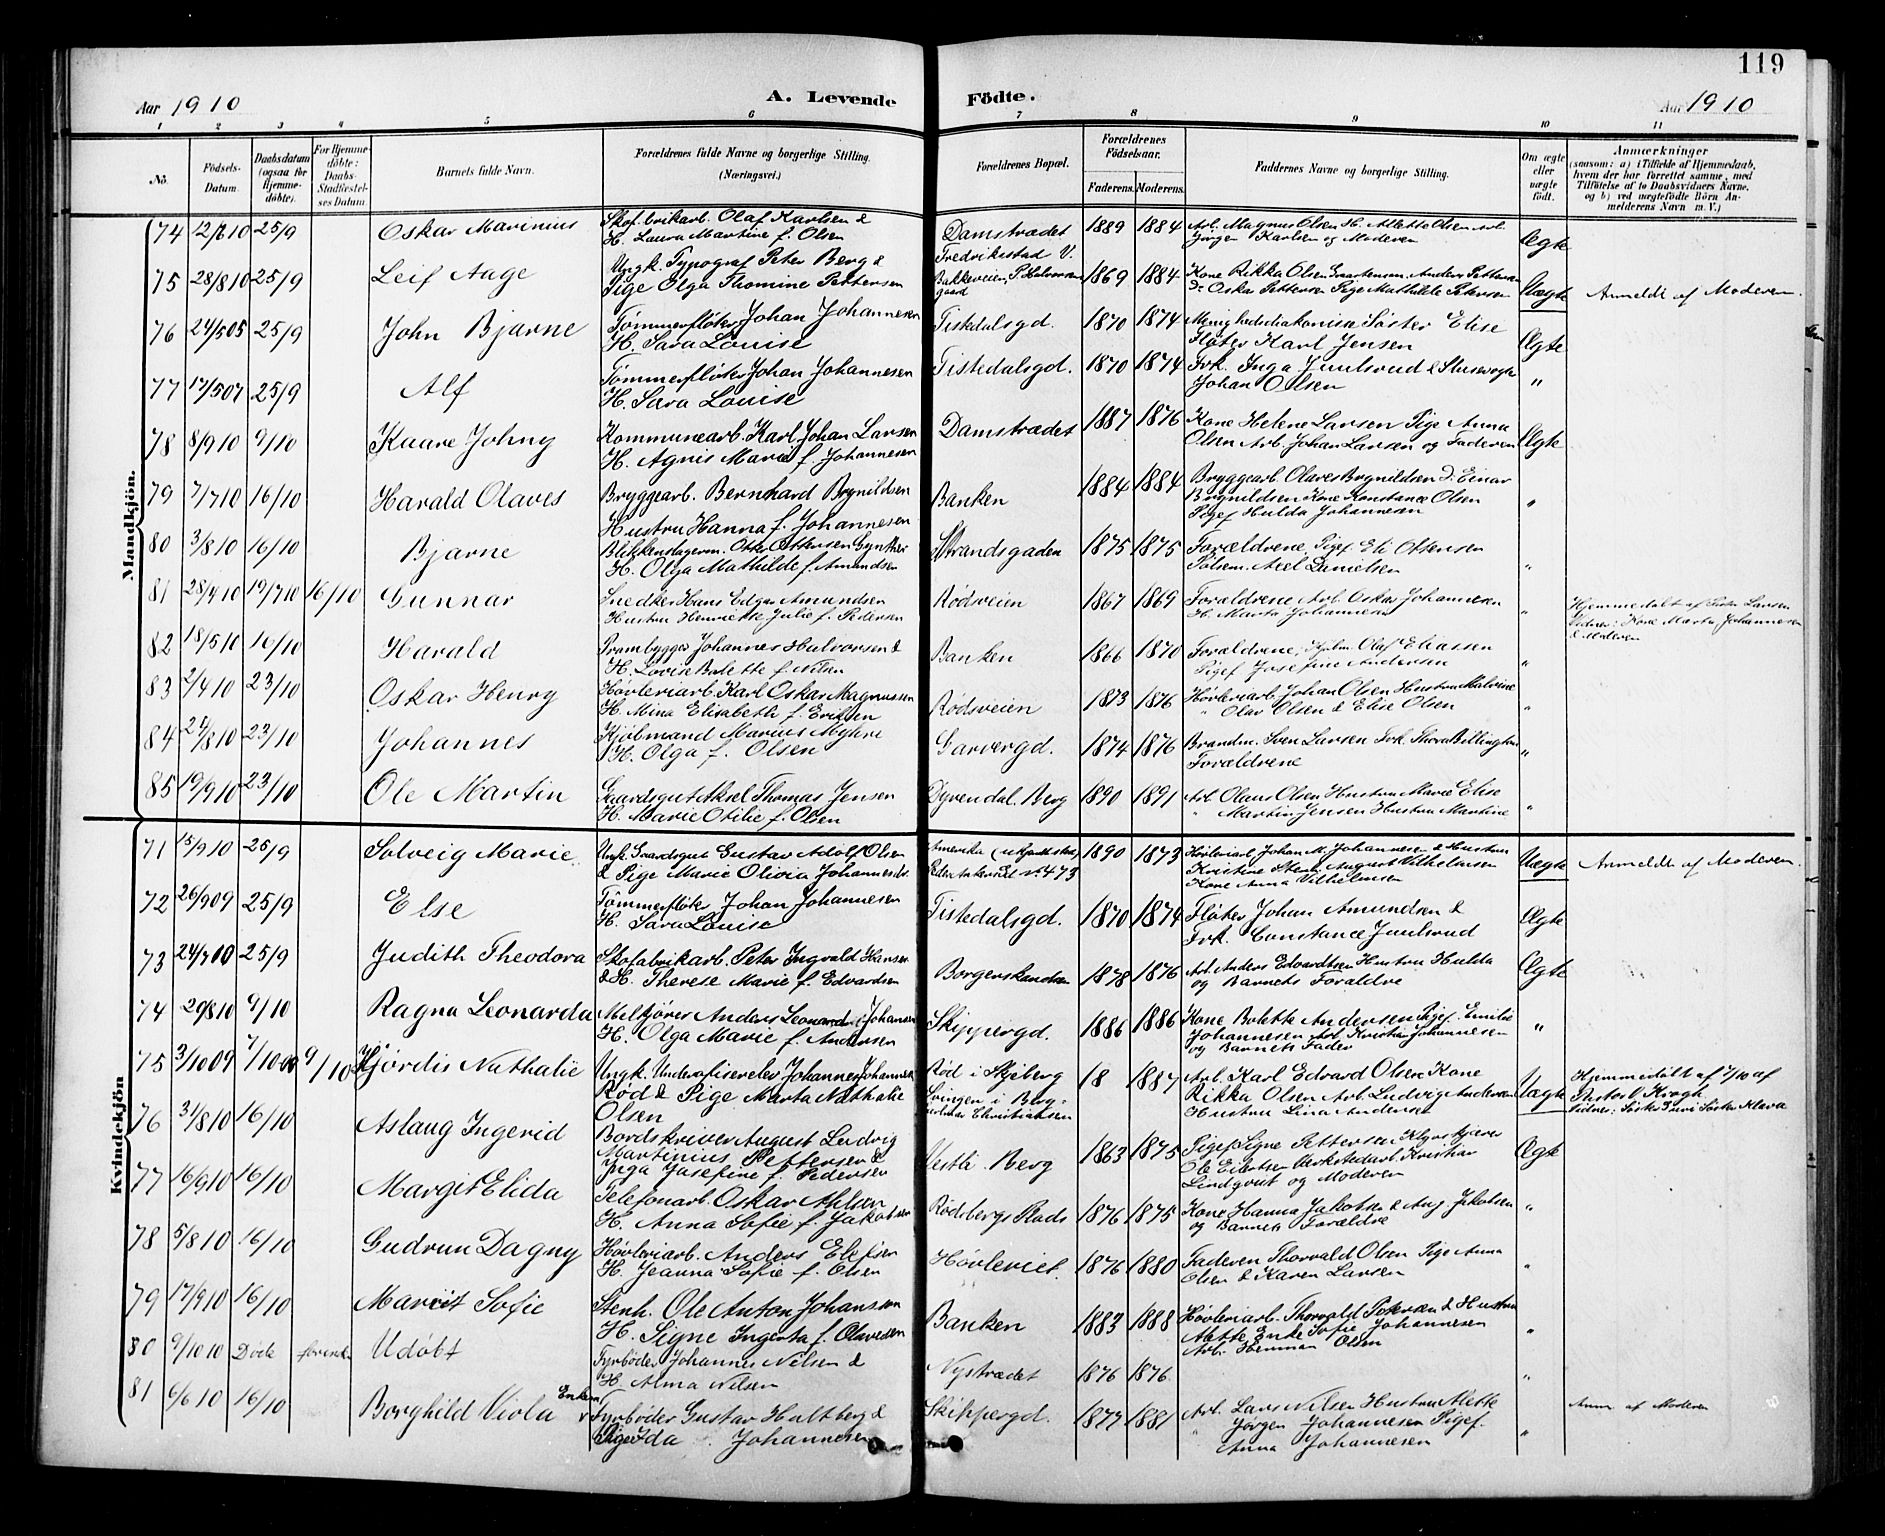 119
Aar 1910 A. Levende Födte. Aar 1910
1 2 3 4 5 6 7 8 9 10 11
No. Födsels-Datum. Daabsdatum (ogsaa for Hjemmedöbte). For Hjemmedöbte: Daabs-Stadfæstelses Datum Barnets fulde Navn. Forældrenes fulde Navne og borgerlige Stilling. (Næringsvei.) Forældrenes Bopæl. Forældrenes Födselsaar. Faderens. Moderens. Faddernes Navne og borgerlige Stilling. Om ægte eller uægte födt. Anmærkninger (saasom: a) i Tilfælde af Hjemmedaab, hvem der har forrettet samme, med Tilföielse af to Daabsvidners Navne, og b) ved uægtefödte Börn Anmelderens Navn m. V.)
Mandkjön.
74 12/8 10 25/9 Oskar Marinius Skofabrikarb. Olaf Karlsen & H. Laura Martine f. Olsen Damstrædet 1889 1884 Arb. Magnus Olsen H. Alette Olsen Arb. Jørgen Karlsen og Moderen Ægte
75 28/8 10 25/9 Leif Aage Ungk. Typograf Peter Berg & Pige Olga Thomine Pettersen Fredrikstad V. Bakkeveien, P. Halvorsen gaard 1869 1884 Kone Rikka Olsen Anders Pettersen D: Oskar Pettersen Pige Mathilde Petersen Uægte Anmeldt af Moderen.
76 24/5 05 25/9 John Bjarne Tømmerfløter Johan Johannesen H. Sara Louise Tistedalsgd. 1870 1874 Menighedsdiakonisse Søster Elise Fløter Karl Jensen Ægte
77 17/5 07 25/9 Alf Tømmerfløter Johan Johannesen H. Sara Louise Tistedalsgd. 1870 1874 Frk. Inga Juulsrud & Slusevogter Johan Olsen "
78 8/9 10 9/10 Kaare Johny Kommunearb. Karl Johan Larsen H. Agnis Marie f. Johannesen Damstrædet 1887 1876 Kone Helene Larsen Pige Anna Olsen Arb. Johan Larsen og Faderen Ægte
79 7/7 10 16/10 Harald Olaves Bryggearb. Bernhard Brynildsen Hustru Hanna f. Johannesen Banken 1884 1884 Bryggearb. Olaves Brynildsen D: Einar Brynildsen Kone Konstance Olsen Pigef Hulda Johannesen "
80 3/8 10 16/10 Bjarne Blikkenslagerm. Otto Ottersen Gynther H. Olga Mathilde f. Amundsen Strandsgaden 1875 1875 Forældrene, Pigef. Eli Ottensen Pølsem. Axel Danielsen "
81 28/4 10 19/7 10 16/10 Gunnar Snedker Hans Edgar Amundsen Hustru Henriette Julie f. Pedersen Rødsveien 1867 1869 Forældrene Arb. Oskar Johannesen H. Marta Johannesen " Hjemmedøbt af Søster Larsen Vidner: Kone Marta Johannesen & Moderen
82 18/5 10 16/10 Harald Prambygger Johannes Halvorsen & H. Lovise Bolette f. Nilsen Banken 1866 1870 Forældrene, Olaf Eliassen Pigef Josefine Andersen "
83 2/4 10 23/10 Oskar Henry Høvleriarb. Karl Oskar Magnussen H. Mina Elisabeth f. Eriksen Rødsveien 1873 1876 Høvleriarb. Johan Olsen Hustru Malvine " Olav Olsen & Elise Olsen "
84 24/8 10 23/10 Johannes Kjøbmand Marius Myhre H. Olga f. Olsen Garvergd. 1874 1876 Brandm. Sven Larsen Frk. Thora Billington Forældrene "
85 19/9 10 23/10 Ole Martin Gaardsgut Aksel Thomas Jensen H. Marie Otilie f. Olsen Dyrendal. Berg 1890 1891 Arb. Olaus Olsen Hustru Marie Elise " Martin Jensen Hustru Martine "
Kvindekjön
71 15/9 10 25/9 Solveig Marie Ungk. Gaardsgut Gustav Adolf Olsen & Pige Marie Olivia Johannesdr. Amerika (ukjendt sted) No 473 1890 1873 Høvleriarb. Johan M. Johannesen & Hustru Kristine August Vilhelmsen Kone Anna Vilhelmsen Uægte Anmeldt af Moderen.
72 26/9 09 25/9 Else Tømmerfløter Johan Johannesen H. Sara Louise Tistedalsgd. 1870 1874 Fløter Johan Amundsen & Frk. Constance Juulsrud Ægte
73 24/7 00 25/9 Judith Theodora Skofabrikarb. Peter Ingvald Hansen & H. Therese Marie f. Edvardsen Borgerskandsen 1878 1876 Arb. Anders Edvardsen Hustru Hulda og Barnets Forældre Ægte
74 29/8 10 9/10 Ragna Leonarda Melkjører Anders Leonard Johansen H. Olga Marie f. Andersen Skippergd. 1886 1886 Kone Bolette Andersen Pigef. Emilie Johannesen Arb. Kristian Johannesen og Barnets Fader "
75 3/10 09 7/10 09 9/10 Hjørdis Nathalie Ungk. Underofficerelev Johannes Johannesen Rød & Pige Marta Nathalie Olsen Rød i Skjeberg Svingen i Berg Christiansen 18 1887 Arb. Karl Edvard Olsen Kone Rikka Olsen Arb. Ludvig Andersen Hustru Lina Andersen Uægte Hjemmedøbt af 7/10 af Pastor C. Krogh Vidner: Søster Guri Søster Klara
76 31/8 10 16/10 Aslaug Ingerid Bordskriver August Ludvig Martinius Pettersen & Inga Josefine f. Pedersen Vestli. Berg 1863 1875 Pigef Signe Pettersen Ole Eilertsen Verkstedarb. Kristian Lindqvist og Moderen Ægte
77 16/9 10 16/10 Margit Elida Telefonarb. Oskar Nilsen H. Anna Sofie f. Jakobsen Rødsbergs Plads 1876 1875 Kone Hanna Jakobsen & Aug. Jakobsen og Barnets Forældre "
78 5/8 10 16/10 Gudrun Dagny Høvleriarb. Anders Elefsen H. Jeanna Sofie f. Olsen Høvleriet. 1876 1880 Faderen Thorvald Olsen Pige Anna Olsen & Karen Larsen "
79 17/9 10 16/10 Marit Sofie Stenh. Ole Anton Johansson H. Signe Ingerta f. Olavesen Banken 1883 1888 Høvleriarb. Thorvald Petersen & Hustru Alette Enke Sofie Johannesen Arb. Herman Olsen "
80 9/10 10 Døde forinden Udøbt Fyrbøder Johannes Nilsen & H. Alma Nilsen Nystrædet 1876 1876 "
81 6/6 10 16/10 Borghild Viola Enkem. Fyrbøder Gustav Hultberg & Pige Ida Johannesen Skippergd. 1877 1881 Arb. Lars Nilsen Hustru Alette " Jørgen Johannesen Pigef. Anna Johannesen " Anm. af Moderen